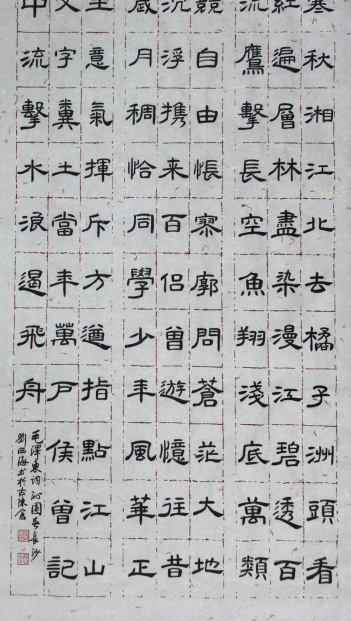 寒秋湘江北去橘子洲頭看
紅遍層林盡染漫江碧透百
流鷹擊長空魚翔淺底萬類
競自由悵寥廓問蒼茫大地
沉浮携来百侣曾遊憶往昔
歲月稠恰同學少年風華正
生意氣揮斥方遒指點江山
文字糞土當年萬户侯曾記
中流擊水浪遏飛舟
毛澤東詞沁園春長沙
劉海书於古陳倉